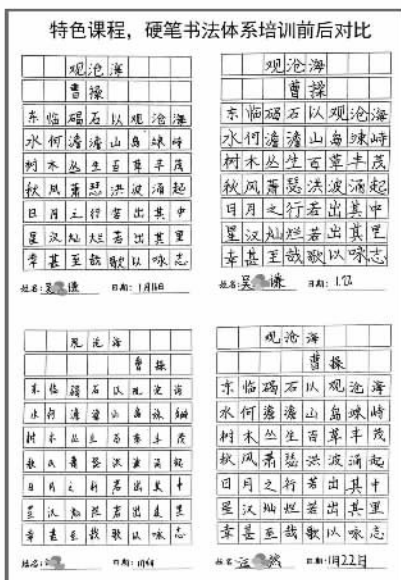 特色课程，硬笔书法体系培训前后对比
观沧海
曹操
东临碣石以观沧海
水何澹澹山岛竦峙
树木丛生百草丰茂
秋风萧瑟洪波涌起
日月之行若出其中
星汉灿烂若出其里
幸甚至哉歌以咏志
姓名：吴 谦 日期：1月16日
观沧海
曹操
东临碣石以观沧海
水何澹澹山岛竦峙
树木丛生百草丰茂
秋风萧瑟洪波涌起
日月之行若出其中
星汉灿烂若出其里
幸甚至哉歌以咏志
姓名：吴 谦 日期：1.22
观沧海
曹操
东临碣石以观沧海
水何澹澹山岛竦峙
树木丛生百草丰茂
秋风萧瑟洪波涌起
日月之行若出其中
星汉灿烂若出其里
幸甚至哉歌以咏志
姓名： 日期：
观沧海
曹操
东临碣石以观沧海
水何澹澹山岛竦峙
树木丛生百草丰茂
秋风萧瑟洪波涌起
日月之行若出其中
星汉灿烂若出其里
幸甚至哉歌以咏志
姓名： 日期：1月22日